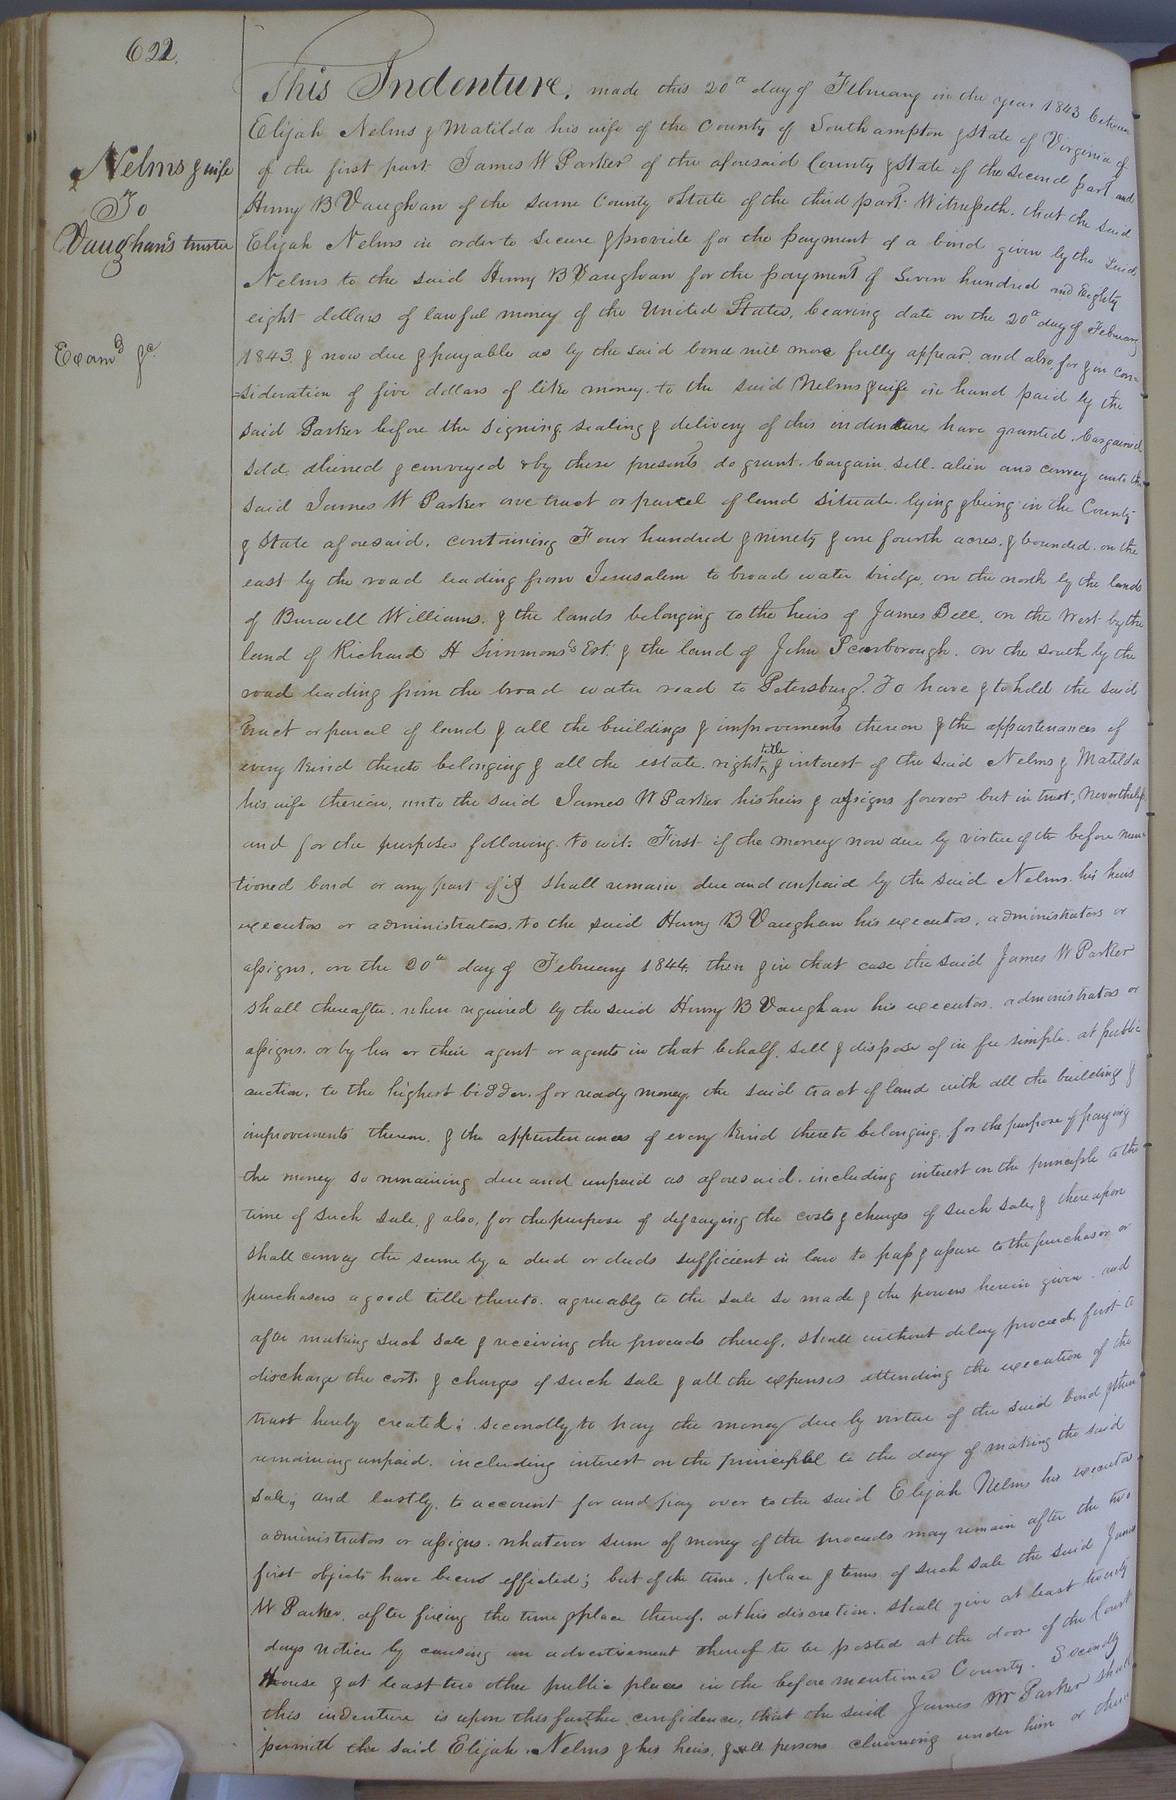 622.
Nelms & wife
To
Vaughan's trustee
Examd &c.
This Indenture, made this 20th day of February in the year 1843 between
Elijah Nelms & Matilda his wife of the County of Southampton & State of Virginia of
of the first part James W Parker of the aforesaid County & State of the second part and
Henry B Vaughan of the same County & State of the third part. Witnesseth, that the said
Elijah Nelms in order to secure & provide for the payment of a bond given by the said
Nelms to the said Henry B Vaughan for the payment of Seven hundred and Eighty
eight dollars of lawful money of the United States, bearing date on the 20th day of February
1843. & now due & payable as by the said bond will more fully appear. and also for & in con-
=sideration of five dollars of like money. to the said Nelms & wife in hand paid by the
said Parker before the signing sealing & delivery of this indenture have granted, bargained
sold, aliened & conveyed & by these presents do grant. bargain, sell. alien and convey unto the
said James W Parker one tract or parcel of land situate. lying & being in the County
& State aforesaid. containing Four hundred & ninety & one fourth acres. & bounded. on the
east by the road leading from Jerusalem to broad water bridge, on the north by the lands
of Burwell Williams. & the lands belonging to the heirs of James Bell, on the West by the
land of Richard H Simmons's Est. & the land of John Scarborough. on the south by the
road leading from the broad water road to Petersburg. To have & to hold the said
tract or parcel of land & all the buildings & improvements thereon & the appurtenances of
every kind thereto belonging & all the estate. right, title & interest of the said Nelms & Matilda
his wife therein, unto the said James W Parker his heirs & assigns forever but in trust, Nevertheless
and for the purposes following. to wit. First if the money now due by virtue of the before men-
tioned bond or any part of it shall remain due and unpaid by the said Nelms. his heirs
executors or administrators. to the said Henry B Vaughan his executors, administrators or
assigns, on the 20th day of February 1844. then & in that case the said James W Parker
shall thereafter, when required by the said Henry B Vaughan his executors. administrators or
assigns. or by his or their agent or agents in that behalf, sell & dispose of in fee simple. at public
auction, to the highest bidder, for ready money, the said tract of land with all the building &
improvements thereon, & the appurtenances of every kind thereto belonging, for the purpose of paying
the money so remaining due and unpaid as aforesaid. including interest on the principle to the
time of such sale, & also, for the purpose of defraying the costs & charges of such sale, & thereupon
shall convey the same by a deed or deeds sufficient in law to pass & assure to the purchaser or
purchasers a good title thereto. agreeably to the sale so made & the powers herein given. and
after making such sale & receiving the proceeds thereof, shall without delay proceed, first to
discharge the costs & charges of such sale & all the expenses attending the execution of the
trust hereby created; secondly to pay the money due by virtue of the said bond & then
remaining unpaid. including interest on the principal to the day of making the said
sale; and lastly, to account for and pay over to the said Elijah Nelms his executors
administrators or assigns. whatever sum of money of the proceeds may remain after the two
first objects have been effected; but of the time, place & terms of such sale the said James
W Parker, after fixing the time & place thereof, at his discretion. shall give at least twenty
days notice by causing an advertisement thereof to be posted at the door of the Court
House & at least two other public places in the before mentioned County. Secondly
this indenture is upon this further confidence, that the said James W Parker shall
permitt the said Elijah Nelms & his heirs, & all persons claiming under him or them